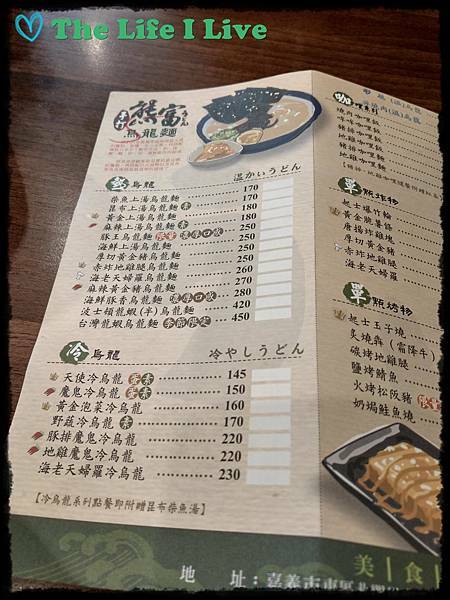 The Life I Live
手打
熊富
うどん
烏龍麵
熱 烏龍
温かいうどん
柴魚上湯烏龍麵 170
昆布上湯烏龍麵 素 180
黃金上湯烏龍麵 180
麻辣上湯烏龍麵 素 250
豚王烏龍麵 限量 濃厚口感 250
海鮮上湯烏龍麵 250
厚切黃金豬烏龍麵 250
赤炸地雞腿烏龍麵 260
海老天婦羅烏龍麵 270
麻辣黃金豬烏龍麵 280
海鮮豚香烏龍麵 濃厚口感 420
波士頓龍蝦(半)烏龍麵 450
台灣龍蝦烏龍麵 季節限定
冷 烏龍
冷やしうどん
天使冷烏龍 蛋素 145
魔鬼冷烏龍 蛋素 150
黃金泡菜冷烏龍 160
野蔬冷烏龍 素 170
豚排魔鬼冷烏龍 220
地雞魔鬼冷烏龍 220
海老天婦羅冷烏龍 230
【冷烏龍系列點餐即附贈昆布柴魚湯】
咖哩系列
燒肉咖哩飯
豬排咖哩飯
地雞咖哩飯
單 點炸物
起士爆竹輪
黃金脆薯條
唐揚炸雞塊
厚切黃金豬
赤炸地雞腿
海老天婦羅
單 點烤物
起士玉子燒
炙燒犇（霜降牛）
碳烤地雞腿
鹽烤鯖魚
火烤松阪豬 限量
奶焗鮭魚燒
美｜食
地 址：嘉義市東區